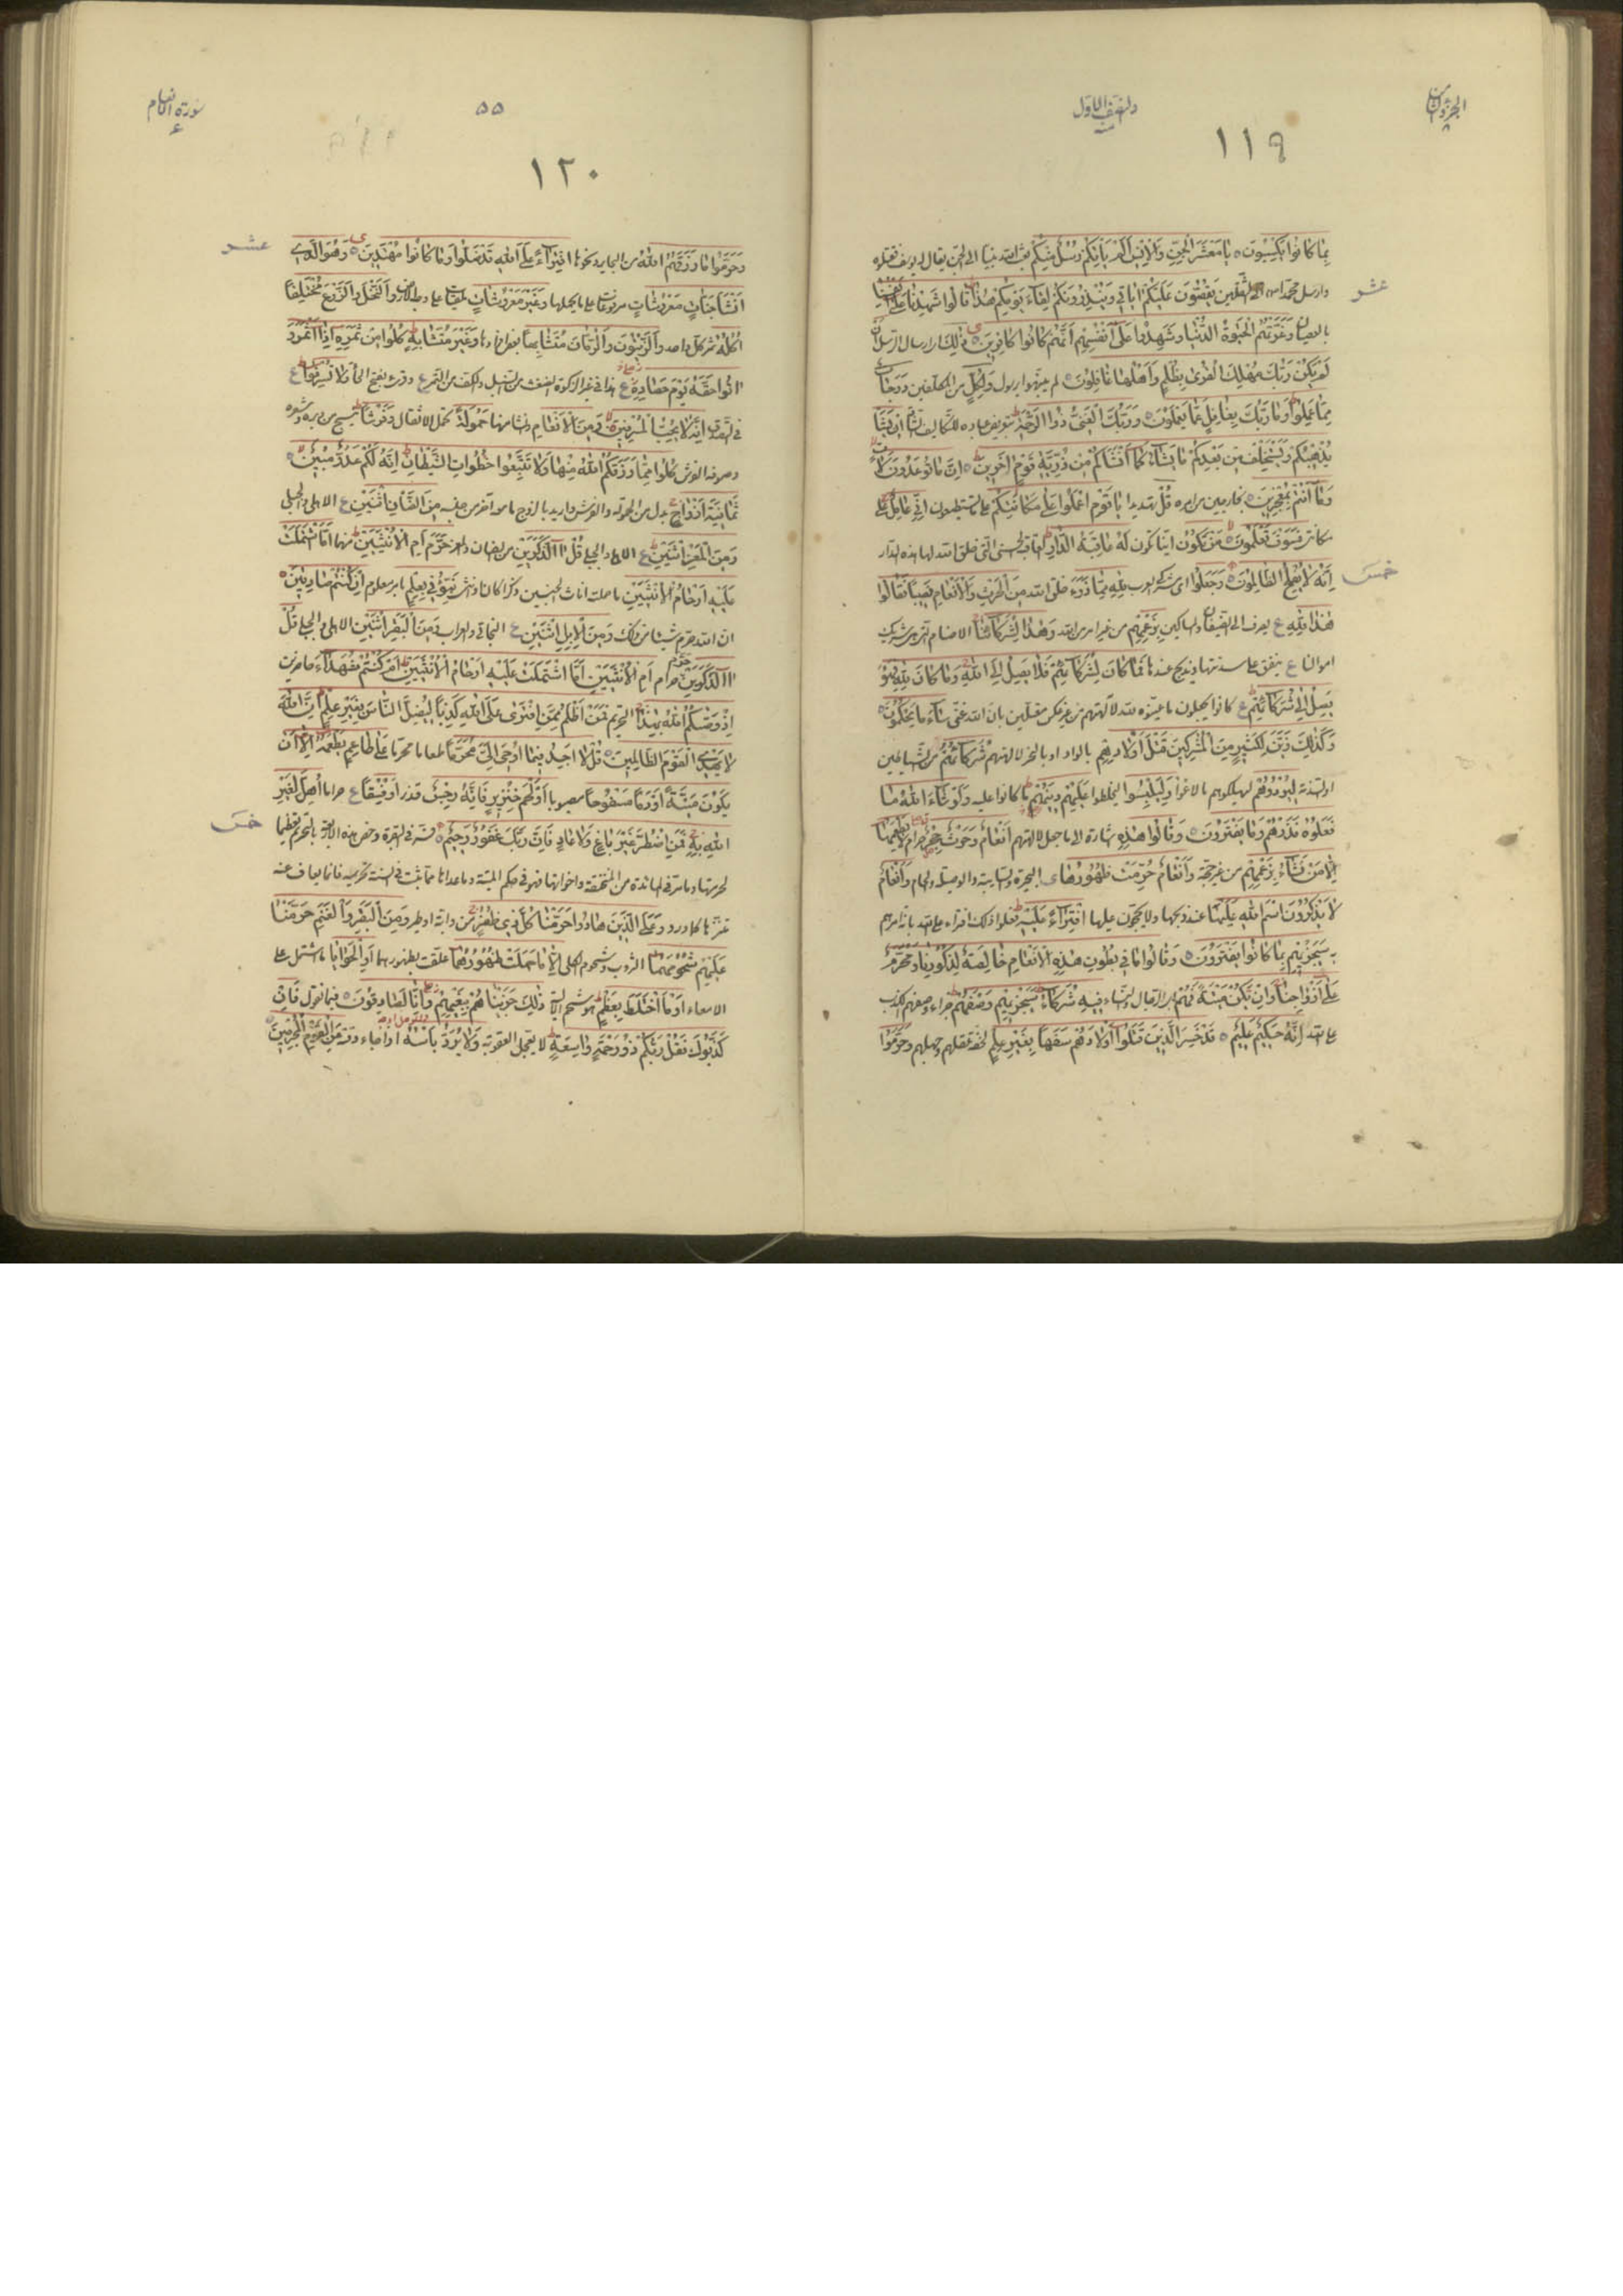 الجزؤ الثامن
والنصف الاول
١١٩
بما كانوا يكسبون ه يا معشر الجن والانس الم ياتكم رسل منكم بعث الله نبيا الى الجن يقال له يوسف فقتلوه
عشر
وارسل محمدا الى الثقلين يقصون عليكم اياتي وينذرونكم لقاء يومكم هذا قالوا شهدنا على انفسنا
بالعصيان وغرتهم الحيوة الدنيا وشهدوا على انفسهم انهم كانوا كافرين ه ذلك ارسال الرسل ان
لم يكن ربك مهلك القرى بظلم واهلها غافلون لم ينبهوا برسول ولكل من المكلفين درجات
مما عملوا وما ربك بغافل عما يعملون ه وربك الغني ذو الرحمة بتعريض عباده للتكاليف ان يشا
يذهبكم ويستخلف من بعدكم ما يشاء كما انشاكم من ذرية قوم اخرين ه ان ما توعدون لات
وما انتم بمعجزين ه بخارجين من امره قل تهديدا يا قوم اعملوا على مكانتكم على ما تستطيعون اني عامل على
مكانتي فسوف تعلمون من تكون اينا تكون له عاقبة الدار العاقبة الحسنى التي خلق الله لها هذه الدار
انه لا يفلح الظالمون ه وجعلوا اي مشركوا العرب لله مما ذرء خلق الله من الحرث والانعام نصيبا فقالوا
خمس
هذا لله ع يصرف الى الضيفان والمساكين بزعمهم من غير امر من الله وهذا لشركائنا الاصنام التي هي شريك
اموالنا ع ينفق على سدنتها ويذبح عندها فما كان لشركائهم فلا يصل الى الله وما كان لله فهو
يصل الى شركائهم ع كانوا يبدلون ما عينوه لله لآلهتهم من غير عكس معللين بان الله غني ساء ما يحكمون
وكذلك زين لكثير من المشركين قتل اولادهم بالواد او بالنحر لالهتهم شركاؤهم من الشياطين
او السدنة ليردوهم ليهلكوهم بالاغواء وليلبسوا ليخلطوا عليهم دينهم ما كانوا عليه ولو شاء الله ما
فعلوه فذرهم وما يفترون ه وقالوا هذه اشارة الى ما جعل لالهتهم انعام وحرث حجر حرام لا يطعمها
الا من نشاء بزعمهم من غير حجة وانعام حرمت ظهورها البحيرة والسايبة والوصيلة والحام وانعام
لا يذكرون اسم الله عليها عند ذبحها ولا يحجون عليها افتراء عليه فعلوا ذلك افتراء على الله بانه امرهم
به سيجزيهم بما كانوا يفترون ه وقالوا ما في بطون هذه الانعام خالصة لذكورنا ومحرم
على ازواجنا وان تكن ميتة فهم الرجال والنساء فيه شركاء سيجزيهم وصفهم جزاء وصفهم الكذب
على الله انه حكيم عليم ه قد خسر الذين قتلوا اولادهم سفها بغير علم لخفة عقلهم وجهلهم وحرموا
سورة الانعام
٥٥
١٢٠
وحرموا ما رزقهم الله من البحاير ونحوها افتراء على الله قد ضلوا وما كانوا مهتدين ه وهو الذي
عشر
انشا جنات معروشات مرفوعات على ما يحملها وغير معروشات ملقيات على وجه الارض والنخل والزرع مختلفا
اكله ثمر كل واحد والزيتون والرمان متشابها بعض افرادها وغير متشابه كلوا من ثمره اذا اثمر و
اتوا حقه يوم حصاده ع هذا في غير الزكوة الضغث من السنبل والكف من التمر ع وقرء بفتح الحاء ولا تسرفوا ع
في التصدق انه لا يحب المسرفين ه و من الانعام وانشا منها حمولة تحمل الاثقال وفرشا ينسج من وبره وشعره
وصوفه الفرش كلوا مما رزقكم الله منها ولا تتبعوا خطوات الشيطان انه لكم عدو مبين ه
ثمانية ازواج بدل من الحمولة والفرش واريد بالزوج ما معه اخر من جنسه من الضان اثنين ع الاهلي والجبلي
ومن المعز اثنين ع الاهلي والجبلي قل االذكرين من الضان والمعز حرم ام الانثيين منهما اما اشتملت
عليه ارحام الانثيين ما حملت اناث الجنسين ذكرا كان او انثى نبئوني بعلم بامر معلوم ان كنتم صادقين ه
ان الله حرم شيئا من ذلك ومن الابل اثنين ع البخاتي والعراب ومن البقر اثنين الاهلي والجبلي قل
االذكرين حرم ام الانثيين اما اشتملت عليه ارحام الانثيين ام كنتم شهداء حاضرين
اذ وصيكم الله بهذا التحريم فمن اظلم ممن افترى على الله كذبا ليضل الناس بغير علم ان الله
لا يهدي القوم الظالمين ه قل لا اجد فيما اوحي الي محرما طعاما محرما على طاعم يطعمه الا ان
يكون ميتة او دما مسفوحا مصبوبا او لحم خنزير فانه رجس قذر او فسقا ع حراما اهل لغير
الله به فمن اضطر غير باغ ولا عاد فان ربك غفور رحيم ه فسر في البقرة وخص هذه الاشياء بالتحريم تعظيما
خمس
لحرمتها وما مر في المائدة من المنخنقة واخواتها فهو في حكم الميتة وما عداها مما ثبت في السنة تحريمه فانما يعاف عنه
تنزها كما ورد وعلى الذين هادوا حرمنا كل ذي ظفر من دابة او طير ومن البقر والغنم حرمنا
عليهم شحومهما الثروب وشحوم الكلى الا ما حملت ظهورهما علقت بظهورهما او الحوايا ما اشتمل على
الامعاء او ما اختلط بعظم هو شحم الالية ذلك جزيناهم ببغيهم وانا لصادقون ه فيما نقول فان
كذبوك فقل ربكم ذو رحمة واسعة لا يعجل العقوبة ولا يرد باسه اذا جاء وقته عن القوم المجرمين